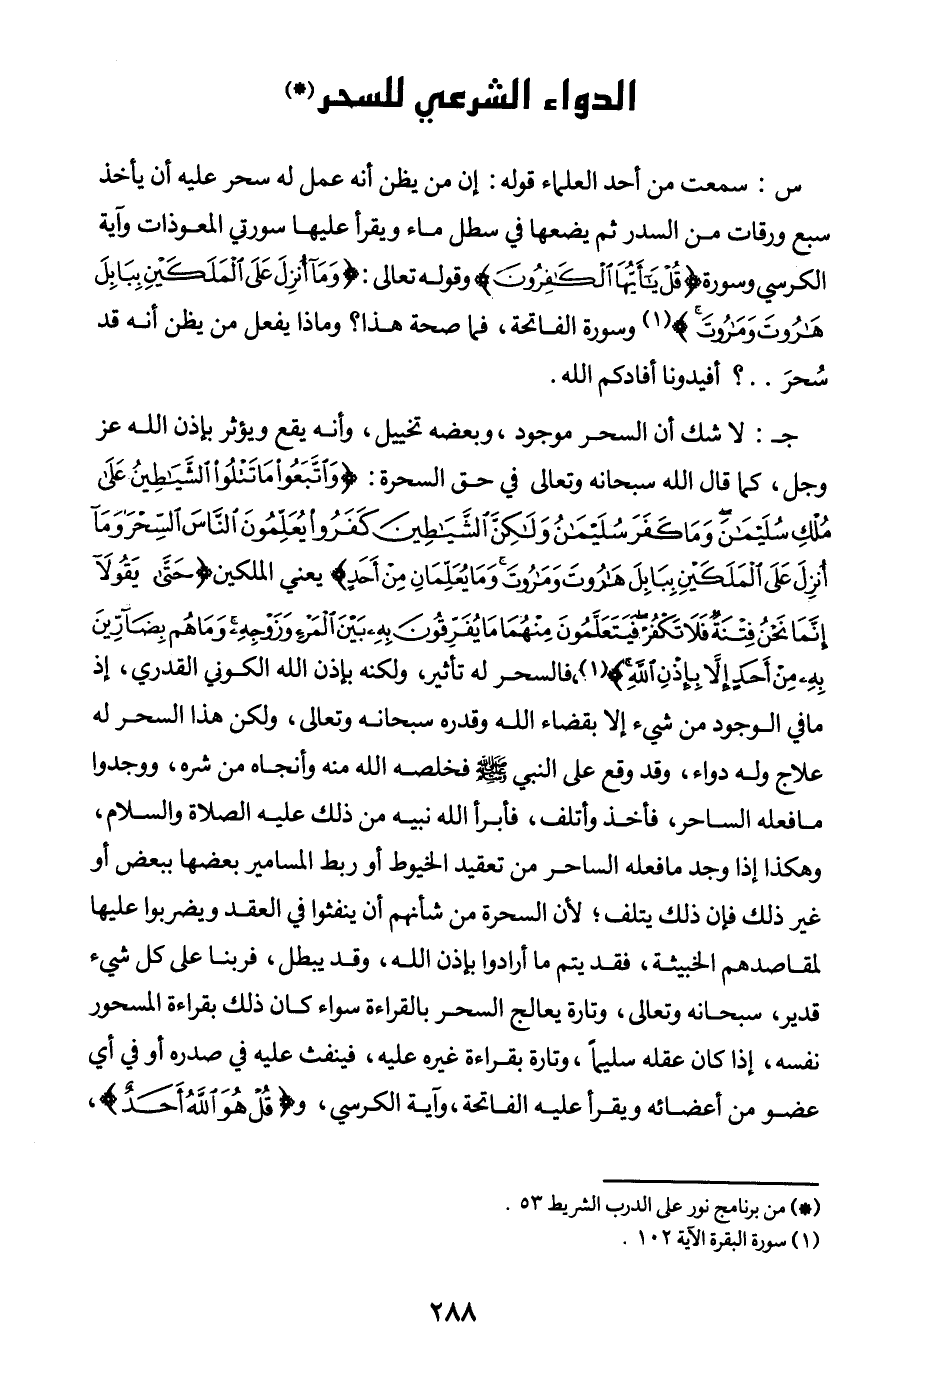 الدواء الشرعي للسحر (*)
س : سمعت من أحد العلماء قوله : إن من يظن أنه عمل له سحر عليه أن يأخذ
سبع ورقات من السدر ثم يضعها في سطل ماء ويقرأ عليها سورتي المعوذات وآية
الكرسي وسورة ﴿ قُلْ يَٰٓأَيُّهَا ٱلْكَٰفِرُونَ ﴾ وقوله تعالى : ﴿ وَمَآ أُنزِلَ عَلَى ٱلْمَلَكَيْنِ بِبَابِلَ
هَٰرُوتَ وَمَٰرُوتَ ۚ ﴾ (١) وسورة الفاتحة ، فما صحة هذا؟ وماذا يفعل من يظن أنه قد
سُحرَ . . ؟ أفيدونا أفادكم الله .
جـ : لا شك أن السحر موجود ، وبعضه تخييل ، وأنه يقع ويؤثر بإذن الله عز
وجل ، كما قال الله سبحانه وتعالى في حق السحرة : ﴿ وَٱتَّبَعُوا۟ مَا تَتْلُوا۟ ٱلشَّيَٰطِينُ عَلَىٰ
مُلْكِ سُلَيْمَٰنَ ۖ وَمَا كَفَرَ سُلَيْمَٰنُ وَلَٰكِنَّ ٱلشَّيَٰطِينَ كَفَرُوا۟ يُعَلِّمُونَ ٱلنَّاسَ ٱلسِّحْرَ وَمَآ
أُنزِلَ عَلَى ٱلْمَلَكَيْنِ بِبَابِلَ هَٰرُوتَ وَمَٰرُوتَ ۚ وَمَا يُعَلِّمَانِ مِنْ أَحَدٍ ﴾ يعني الملكين ﴿ حَتَّىٰ يَقُولَآ
إِنَّمَا نَحْنُ فِتْنَةٌ فَلَا تَكْفُرْ ۖ فَيَتَعَلَّمُونَ مِنْهُمَا مَا يُفَرِّقُونَ بِهِۦ بَيْنَ ٱلْمَرْءِ وَزَوْجِهِۦ ۚ وَمَا هُم بِضَآرِّينَ
بِهِۦ مِنْ أَحَدٍ إِلَّا بِإِذْنِ ٱللَّهِ ۚ ﴾ (١)، فالسحر له تأثير، ولكنه بإذن الله الكوني القدري ، إذ
مافي الوجود من شيء إلا بقضاء الله وقدره سبحانه وتعالى ، ولكن هذا السحر له
علاج وله دواء ، وقد وقع على النبي ﷺ فخلصه الله منه وأنجاه من شره ، ووجدوا
مافعله الساحر، فأخذ وأتلف ، فأبرأ الله نبيه من ذلك عليه الصلاة والسلام ،
وهكذا إذا وجد مافعله الساحر من تعقيد الخيوط أو ربط المسامير بعضها ببعض أو
غير ذلك فإن ذلك يتلف ؛ لأن السحرة من شأنهم أن ينفثوا في العقد ويضربوا عليها
لمقاصدهم الخبيثة ، فقد يتم ما أرادوا بإذن الله ، وقد يبطل ، فربنا على كل شيء
قدير، سبحانه وتعالى ، وتارة يعالج السحر بالقراءة سواء كان ذلك بقراءة المسحور
نفسه ، إذا كان عقله سليماً ، وتارة بقراءة غيره عليه ، فينفث عليه في صدره أو في أي
عضو من أعضائه ويقرأ عليه الفاتحة ، وآية الكرسي ، و﴿ قُلْ هُوَ ٱللَّهُ أَحَدٌ ﴾ ،
(*) من برنامج نور على الدرب الشريط ٥٣ .
(١) سورة البقرة الآية ١٠٢ .
٢٨٨